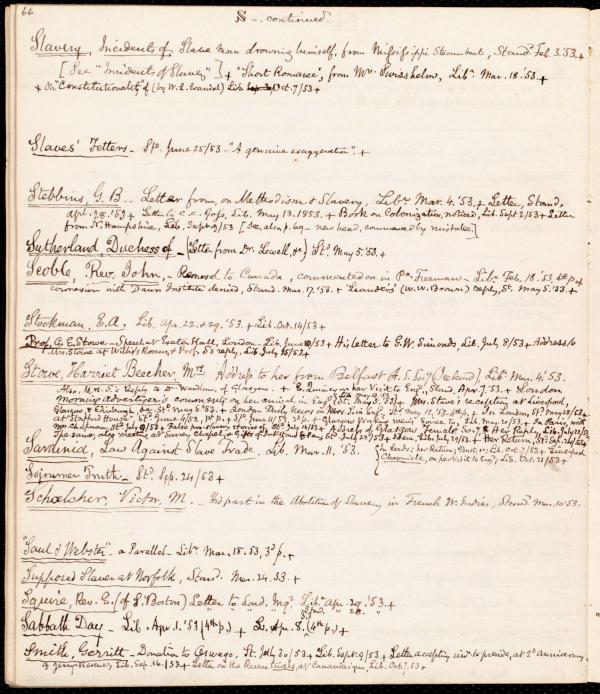 66
S -, continued.
Slavery, Incidents of, Slave man drowning himself, from Mississippi Steamboat, Stand. Feb. 3.'53.+
[See "Incidents of Slavery"] + "Short Romance", from Mrs. Swisshelm, Lib. Mar. 18.'53.+
+ On "Constitutionality" of (by W. L. Crandal) Lib. Oct. 7/53+
Slaves' Fetters - Std. June 25/53 - "A genuine exaggeration". +
Stebbins, G. B. - Letter from, on Methodism & Slavery, Lib. Mar. 4.'53. + Letter, Stand.
Apr. 28.'53 + Letter to C. C. Goss, Lib. May 13.1853. + Book on Colonization, noticed, Lib. Sept 2/53 + Letter
from N. Hampshire, Lib. Sept 9/53 [See, also, p. 69 - new head, commenced by mistake.]
Sutherland, Duchess of - (Letter from Dr. Lowell, to) St. May 5.'53. +
Scoble, Rev. John, - Removal to Canada, commented on in Pa. Freeman - Lib. Feb. 18.'53, 4th p. +
connexion with Dawn Institute denied, Stand. Mar. 17.'53. + "Leander's" (W. W. Brown) reply, St. May 5.'53. +
Stockman, E. A. Lib. Apr. 22. & 29.'53. + Lib. Oct. 14/53 +
Prof. C. E. Stowe - Speech at Exeter Hall, London - Lib. June 10/53 + His letter to G. W. Simonds, Lib. July 8/53 + Address to
Mrs. Stowe at Willis's Rooms, & Prof. S's reply, Lib. July 15/52 +
Stowe, Harriet Beecher, Mrs. Address to her from Belfast A. S. Socy (Ireland) Lib. Mar. 4.'53.
Also, Mrs. S.'s Reply to Dr. Wardlaw, of Glasgow. + E. Quincy on her Visit to Eng., Stand. Apr. 7.'53. + London
Morning Advertiser's comments on her arrival in Eng. + Mrs. Stowe's reception at Liverpool,
Glasgow & Edinburgh, &c. St. May 5.'53. + London Paper, Lib. May 13,'53, 4th p. + In London, St. May 28/53 +
at Stafford House St. June 4/53 + Glasgow Soiree to, Lib. May 20/53 + In Paris, with
Mrs. Chapman, St. July 9/53 + False pro-slavery stories of St. July 16/53 + Address of Female Soc. & Her Reply, Lib. July 22/53
The same, also meeting at Surrey Chapel, St. July 23/53 + Idem. Lib. July 29/53 + Her Return, St. Sep. 24/53
Sardinia, Law Against Slave Trade. Lib. Mar. 11.'53.
{In Leeds; her Return; Bust, &c; Lib. Oct. 7/53 + "Liverpool
Chronicle, on her visit to Eng.; Lib. Oct. 21/53 +
Sojourner Truth - St. Sep. 24/53 +
Schœlcher, Victor, M. - His part in the Abolition of Slavery in French W. Indies, Stand. Mar. 10.'53.
"Saul & Webster" - a Parallel - Lib. Mar. 18.53, 3d p. +
Supposed Slaver at Norfolk, Stand. Mar. 24.53. +
Squire, Rev. E. (of S. Boston) Letter to Lond. Inqr. Lib. Apr. 29.'53. +
Stand. " 28. " +
Sabbath Day - Lib. Apr. 1.'53 (4th p.) + L. Apr. 8. (4th p.) +
Smith, Gerrit - Donation to Oswego, St. July 30/53 + Lib. Sept. 9/53 + Letter accepting invn. to preside, at 2d Anniversary
of Jerry Rescue, Lib. Sep. 16/53 + Letter on the Rescue trials, at Canandaigua, Lib. Oct. 7.53 +